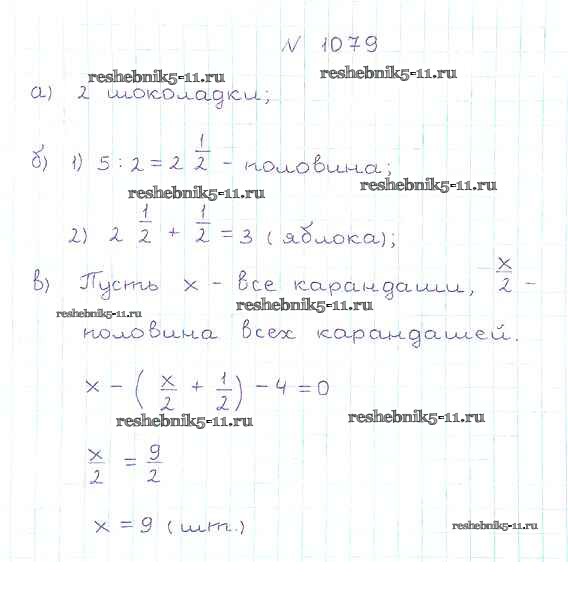 N 1079
reshebnik5-11.ru reshebnik5-11.ru
а) 2 шоколадки;
б) 1) 5 : 2 = 2 1/2 - половина;
reshebnik5-11.ru reshebnik5-11.ru
2) 2 1/2 + 1/2 = 3 (яблока);
в) Пусть x - все карандаши, x/2 -
reshebnik5-11.ru reshebnik5-11.ru
половина всех карандашей.
x - (x/2 + 1/2) - 4 = 0
reshebnik5-11.ru reshebnik5-11.ru
x/2 = 9/2
x = 9 (шт.)
reshebnik5-11.ru